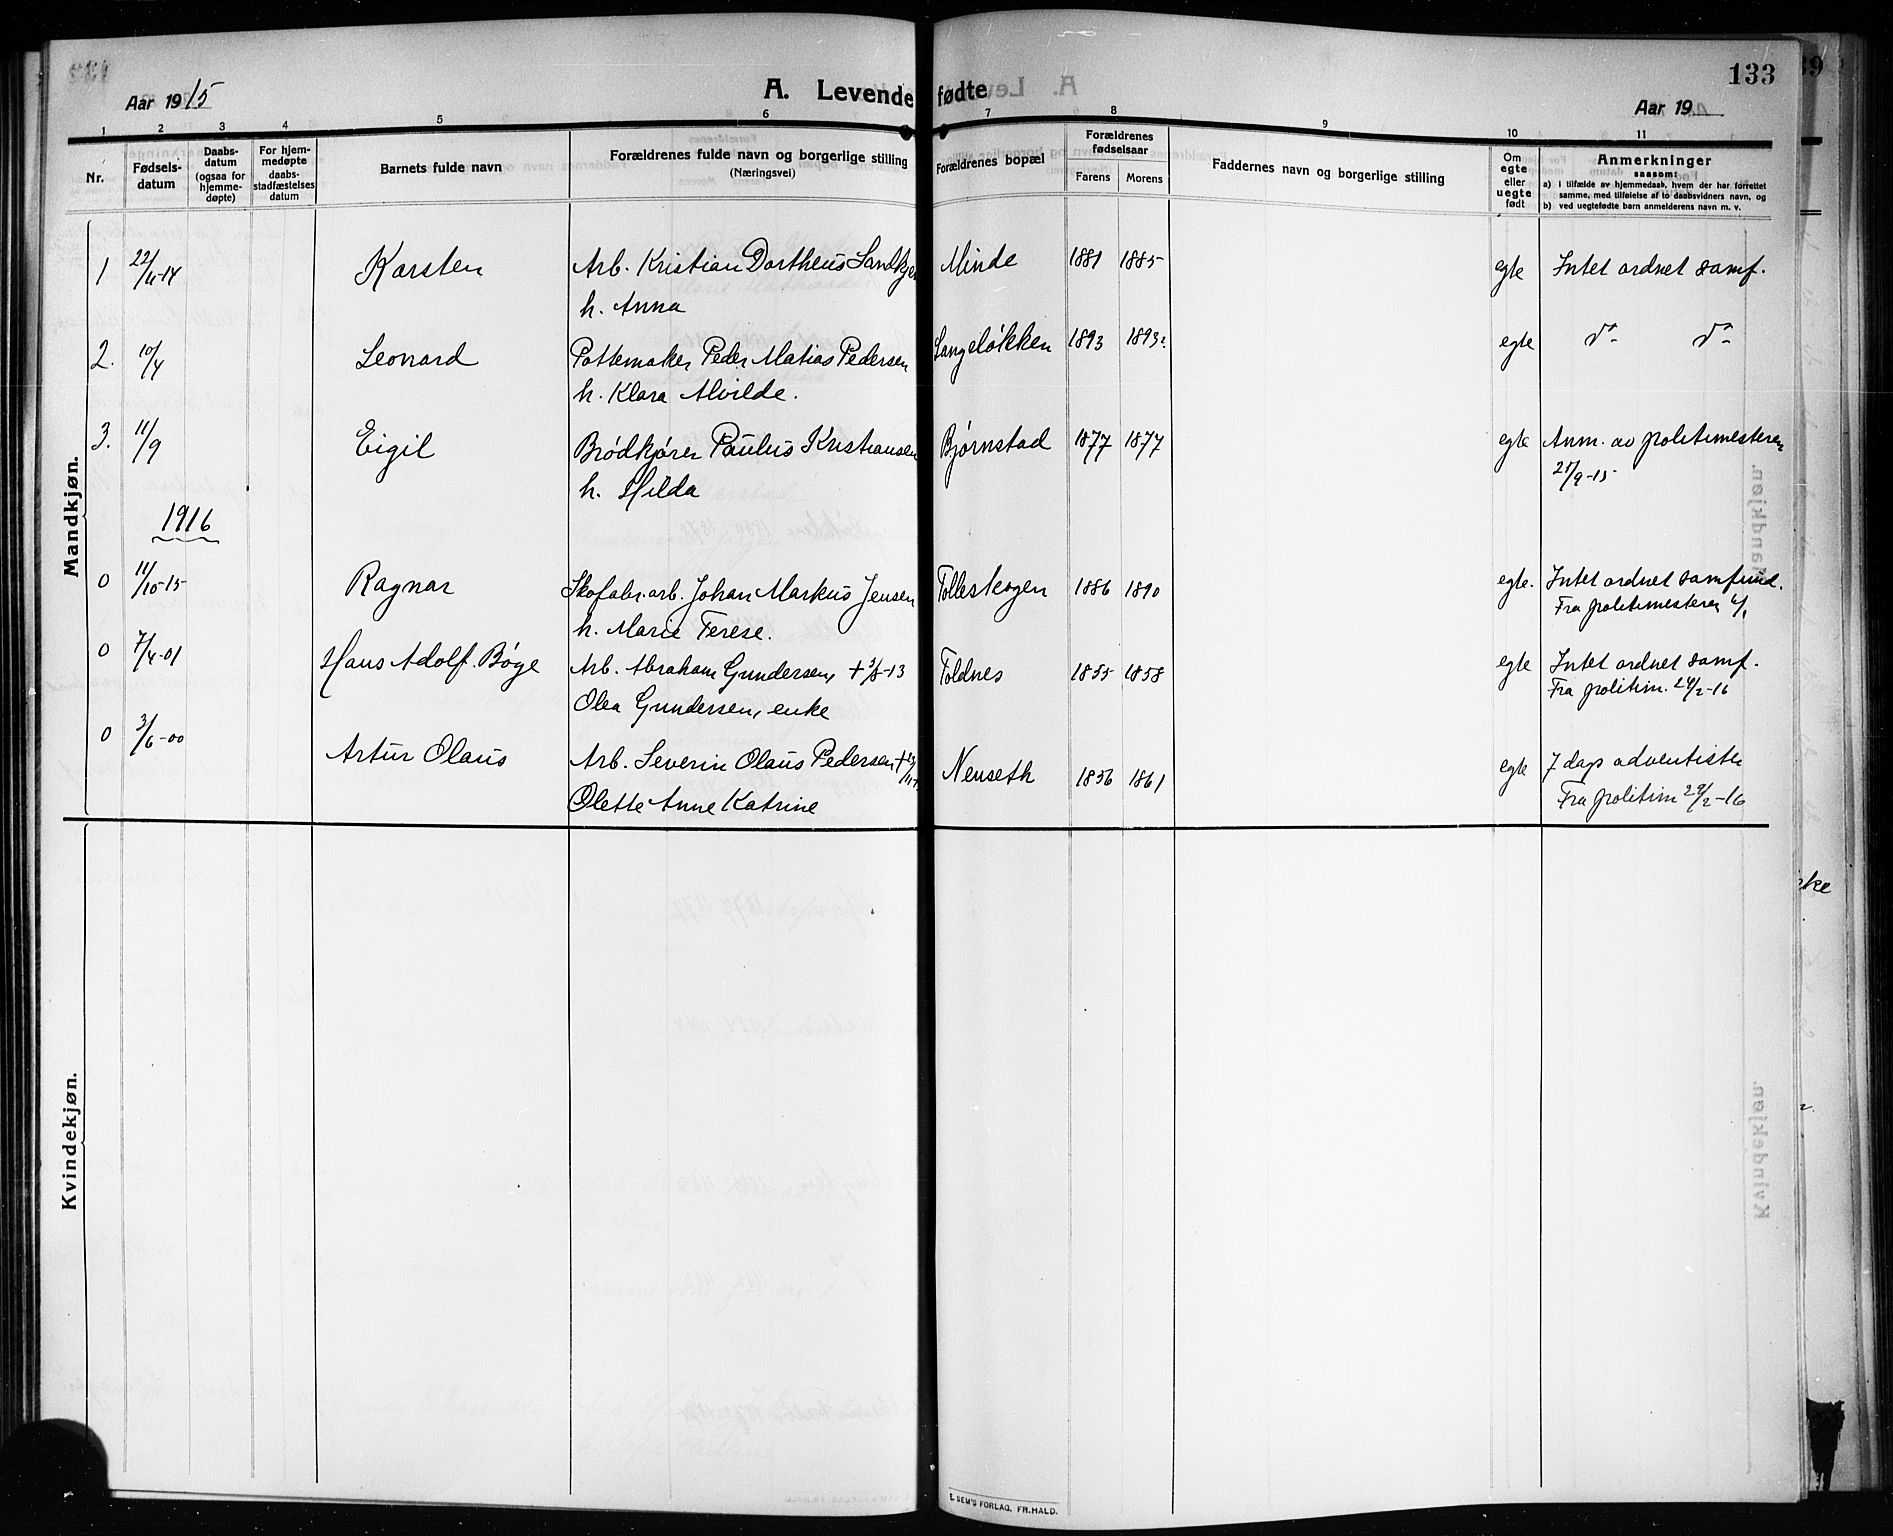 133
Aar 1915
A. Levende fødte
Aar 19
1 2 3 4 5 6 7 8 9 10 11
Nr.
Fødsels-
datum
Daabs-
datum
(ogsaa for
hjemme-
døpte)
For hjem-
medøpte
daabs-
stadfæstelses
datum
Barnets fulde navn
Forældrenes fulde navn og borgerlige stilling
(Næringsvei)
Forældrenes bopæl
Forældrenes
fødselsaar
Farens Morens
Faddernes navn og borgerlige stilling
Om
egte
eller
uegte
født
Anmerkninger
saasom:
a) I tilfælde av hjemmedaab, hvem der har forrettet
samme, med tilføielse af to daabsvidners navn, og
b) ved uegtefødte barn anmelderens navn m. v.
Mandkjøn.
1 22/ -14 Karsten Arb. Kristian Dortheus Minde 1881 1885 egte Intet ordnet samf.
h. Anna
2. 10/4 Leonard Pottemaker Peder Matias Pedersen Langeløkken 1893 1893 egte do do
h. Klara Alvilde.
3. 11/9 Eigil Brødkjører Paulus Kristiansen Bjørnstad 1877 1877 egte Anm. av politimesteren
h. Hilda 21/9-15
1916
0 11/10-15 Ragnar Skofabr.arb. Johan Markus Jensen Tolleskogen 1886 1890 egte. Intet ordnet samfund.
h. Marie Terese. Fra politimesteren
0 7/4-01 Hans Adolf Bøge Arb. Abraham Gundersen, + -13 Toldnes 1855 1858 egte Intet ordnet samf.
Olea Gundersen, enke Fra politim. 24/2-16
0 3/6-00 Artur Olaus Arb. Severin Olaus Pedersen + Nenseth 1856 1861 egte 7 dags adventister
Olette Anne Katrine Fra politim 29/2-16
Kvindekjøn.
E. SEM'S FORLAG, FR.HALD.